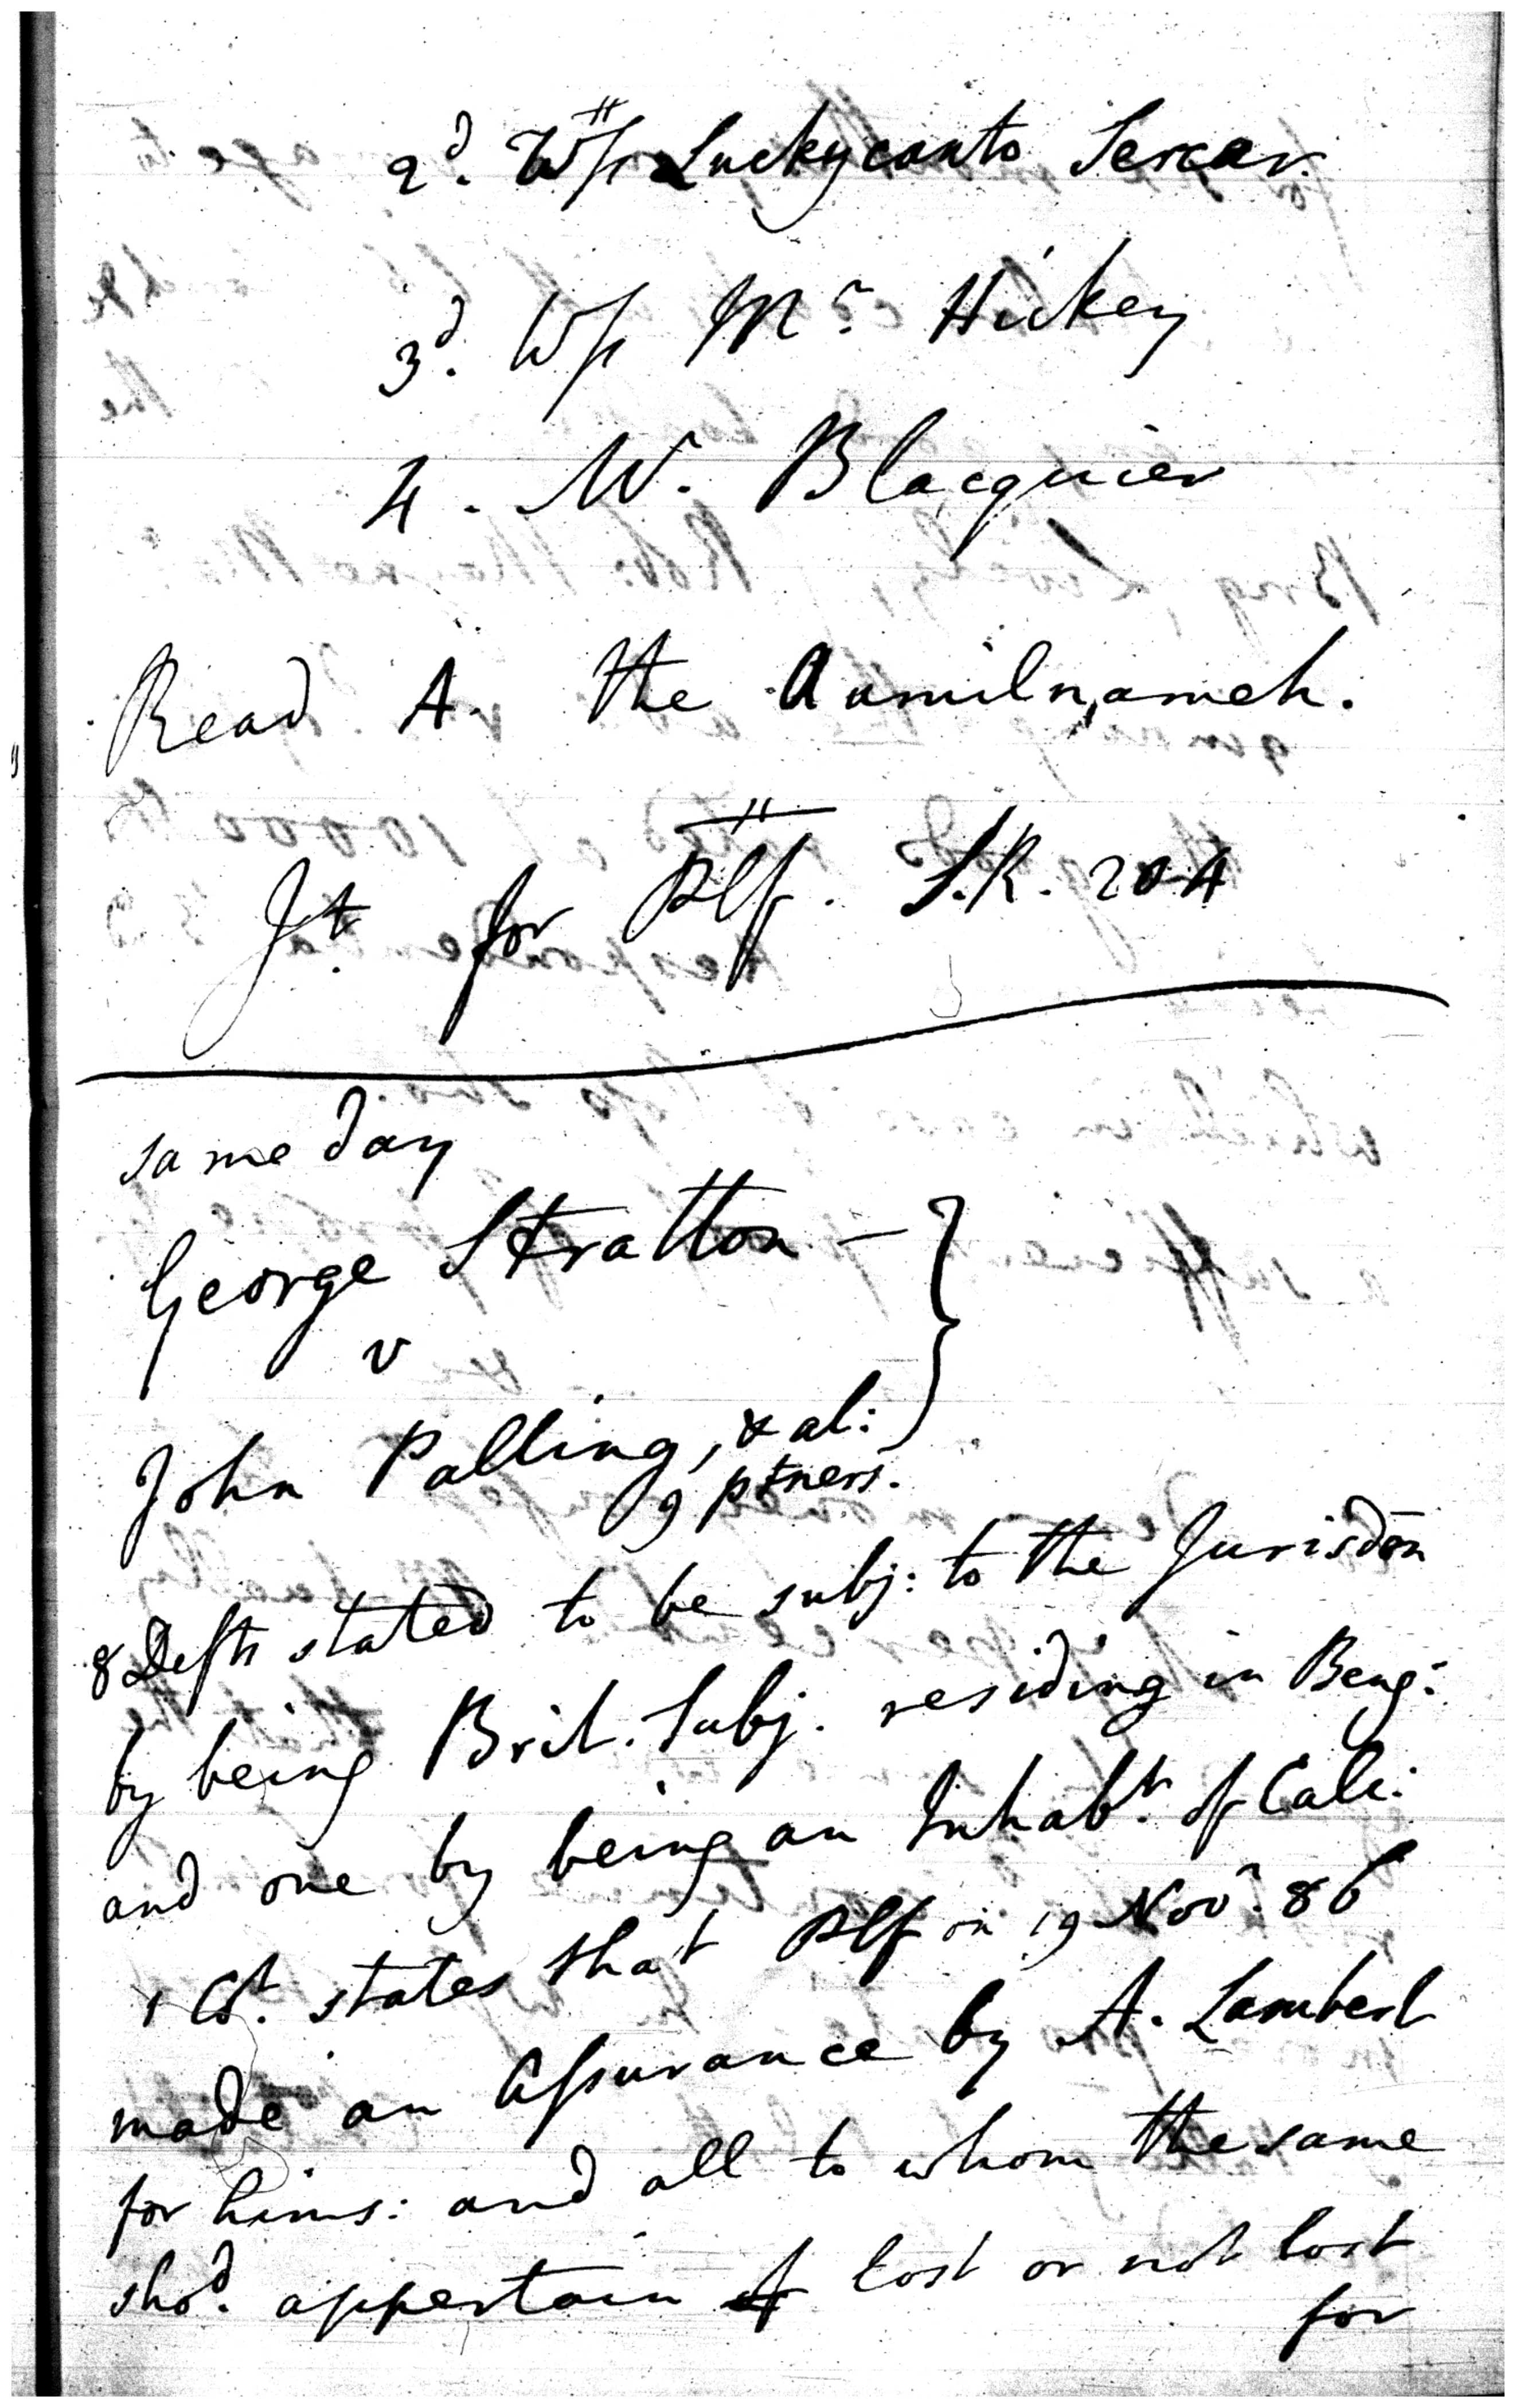 2d. Ws Luckycanto Sercar.
3d. Ws Mr. Hickey
4. Mr. Blacquier
Read A. the Aumilnameh.
Jt. for Plf. S.R. 204
same day
George Stratton —
v
John Palling, & al:
9 ptners.
8 Defts stated to be subj: to the Jurisdon
by being Brit. Subj. residing in Beng:
and one by being an Inhabt. of Calc:
1 Ct. states that Plf on 19 Novr. 86
made an Assurance by A. Lambert
for hims: and all to whom the same
shod. appertain lost or not lost
for